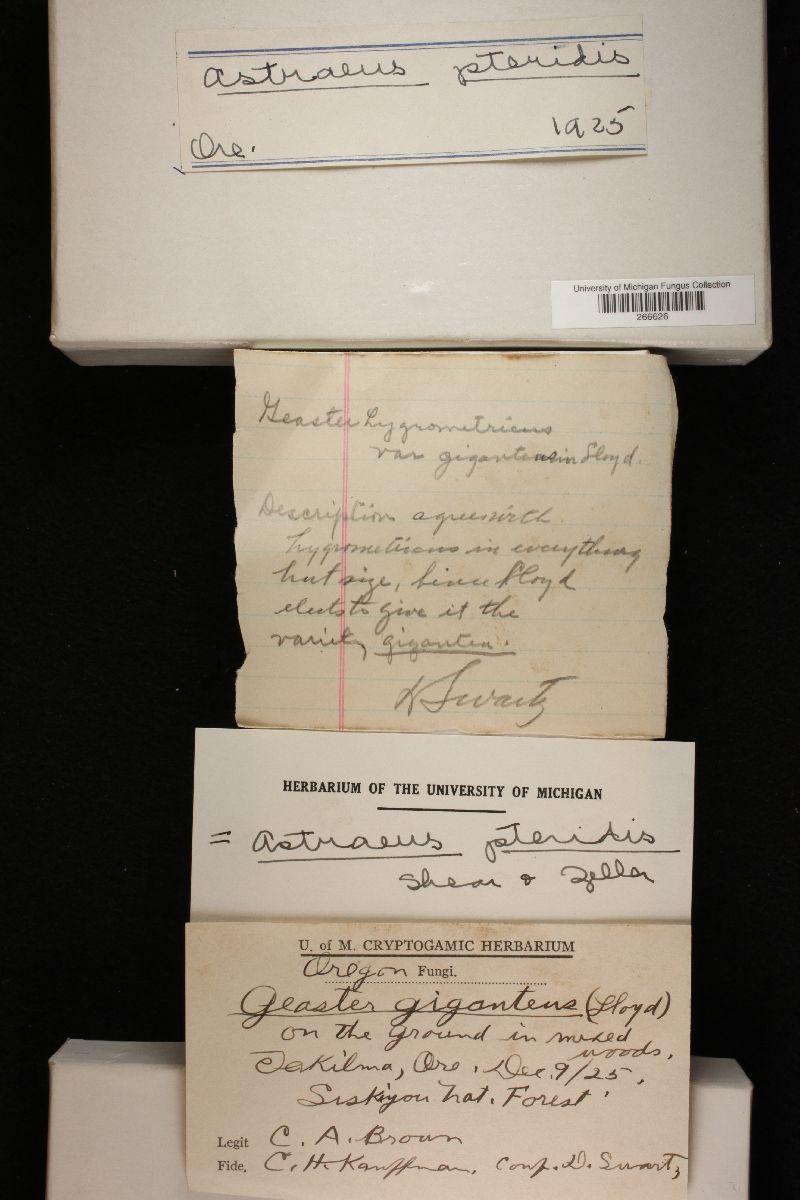 Astraeus pteridis
Ore. 1925
University of Michigan Fungus Collection
266626
Geaster hygrometricus
var giganteus in Lloyd.
Description agrees with
hygrometricus in everything
but size, hence Lloyd
elects to give it the
variety gigantea.
D Swartz
HERBARIUM OF THE UNIVERSITY OF MICHIGAN
= Astraeus pteridis
Shear & Zeller
U. of M. CRYPTOGAMIC HERBARIUM
Oregon Fungi.
Geaster giganteus (Lloyd)
on the ground in mixed
woods.
Takilma, Ore. Dec. 9/25,
Siskiyou Nat. Forest.
Legit C. A. Brown
Fide, C. H. Kauffman. Comp. D. Swartz